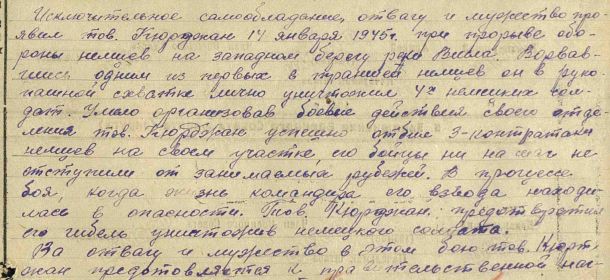 Исключительное самообладание, отвагу и мужество про
явил тов. Кюрджан 14 января 1945г. при прорыве обо-
роны немцев на западном берегу реки Висла. Ворвав-
шись одним из первых в траншеи немцев он в руко
пашной схватке лично уничтожил 4х немецких сол-
дат. Умело организовав боевые действия своего отде-
ления тов. Кюрджан успешно отбил 3-контратаки
немцев на своем участке, его бойцы ни на шаг не
отступили от занимаемых рубежей. В процессе
боя, когда жизнь командира его взвода находи
лась в опасности. Тов. Кюрджан предотвратил
его гибель уничтожив немецкого солдата.
За отвагу и мужество в этом бою тов. Кюрд-
жан представляется к правительственной наг-